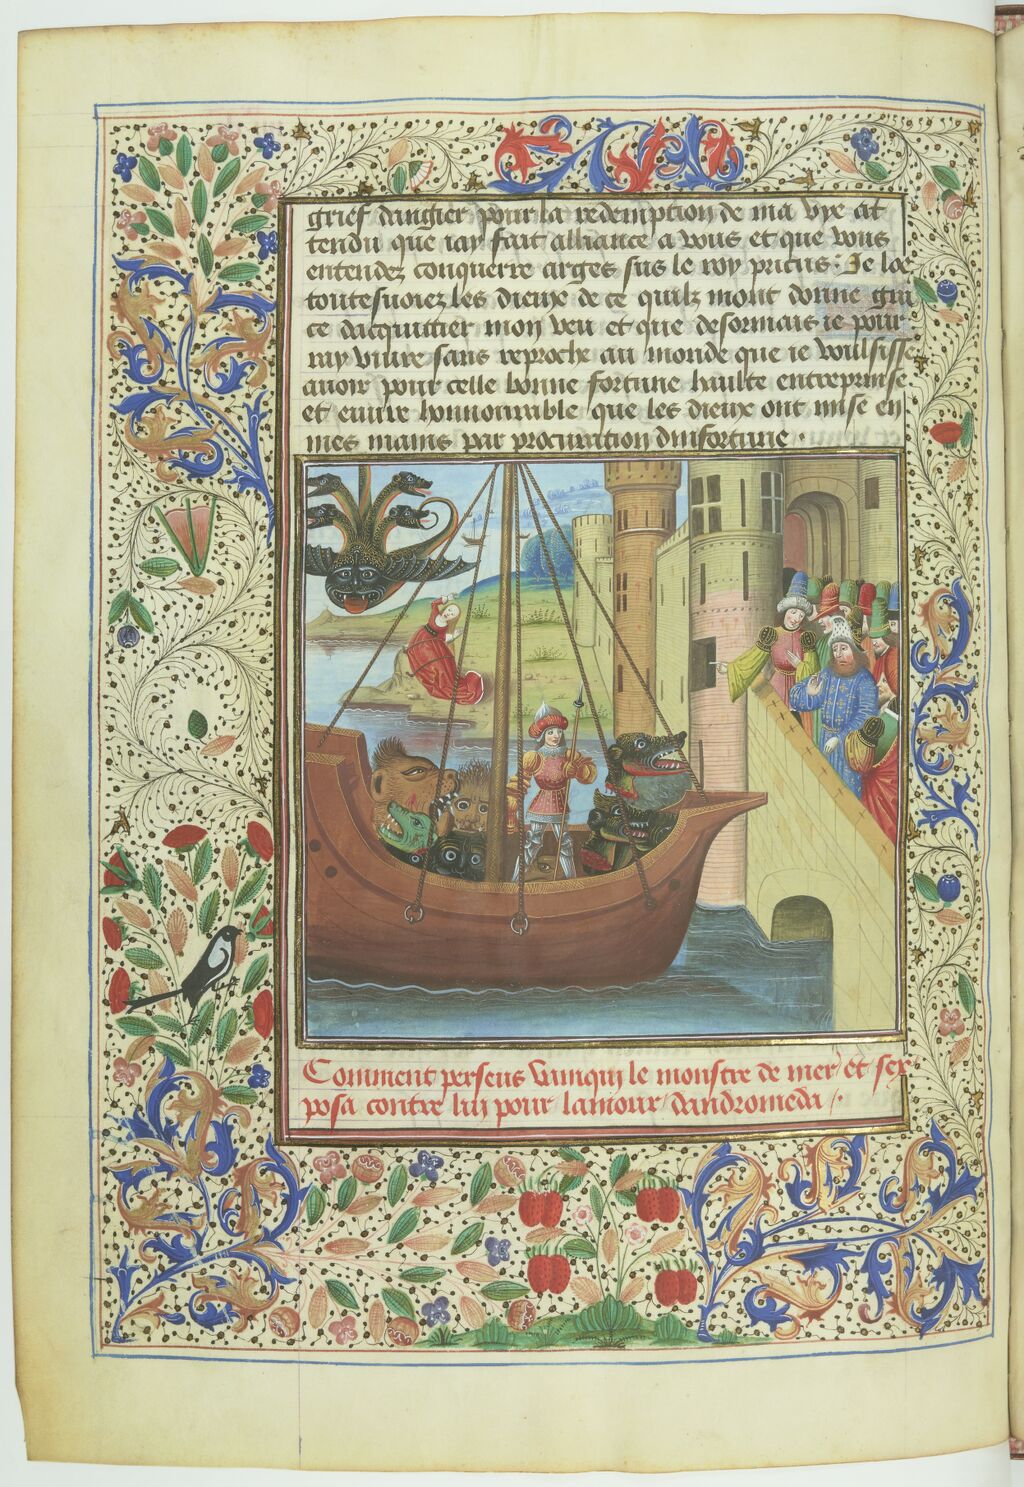 grief dangier pour la redemption de ma vye at
tendu que iay fait alliance a vous et que vous
entendez conquerre arges sus le roy pricus. Je loe
toutesuoiez les dieux de ce quilz mont donne gra
ce dacquittier mon veu et que desormais ie pour
ray viure sans reproche au monde que ie voulsisse
auoir pour celle bonne fortune haulte entreprinse
et euure honnourable que les dieux ont mise en
mes mains par procuration dinfortune .
Comment perseus vainqui le monstre de mer et sex
posa contre lui pour lamour dandromeda .